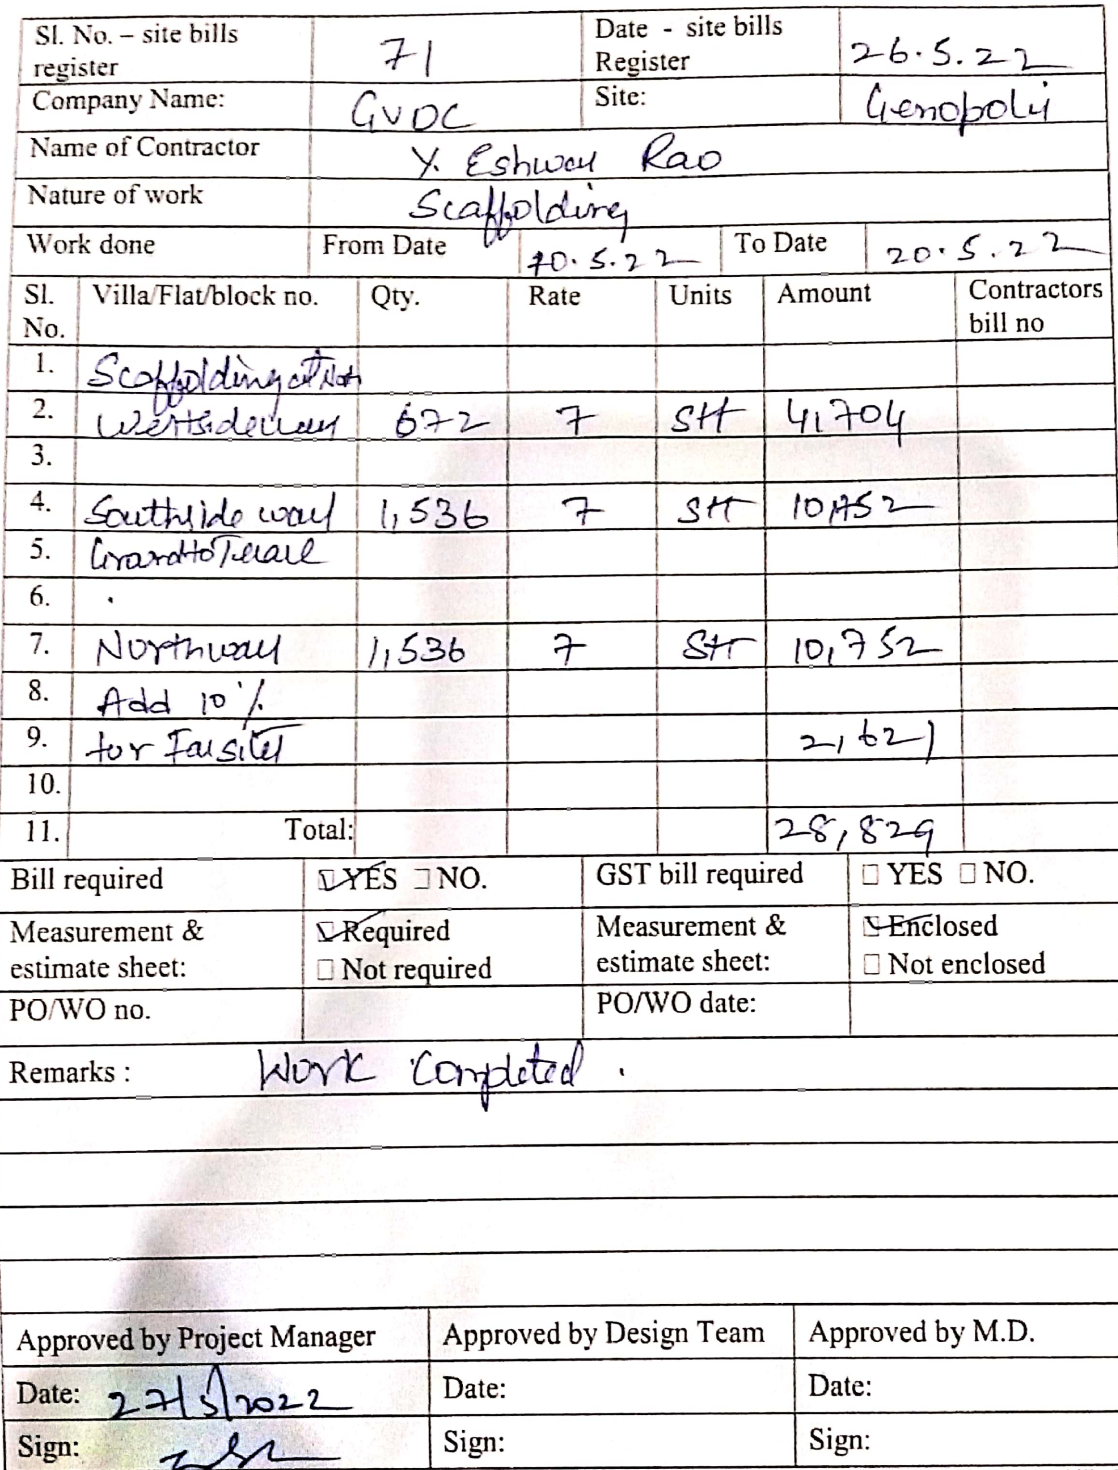 Sl. No. – site bills register 71 Date - site bills Register 26.5.22
Company Name: GVDC Site: Genopoly
Name of Contractor Y. Eshwar Rao
Nature of work Scaffolding
Work done From Date 10.5.22 To Date 20.5.22
Sl. No. Villa/Flat/block no. Qty. Rate Units Amount Contractors bill no
1. Scaffolding at
2. Westside wall 672 7 Sft 4,704
3.
4. Southside wall 1,536 7 Sft 10,752
5. Grand to
6.
7. Northwall 1,536 7 Sft 10,752
8. Add 10%
9. for 2,621
10.
11. Total: 28,829
Bill required YES NO. GST bill required YES NO.
Measurement & estimate sheet: Required Not required Measurement & estimate sheet: Enclosed Not enclosed
PO/WO no. PO/WO date:
Remarks : Work Completed .
Approved by Project Manager Approved by Design Team Approved by M.D.
Date: 27/5/2022 Date: Date:
Sign: Sign: Sign: